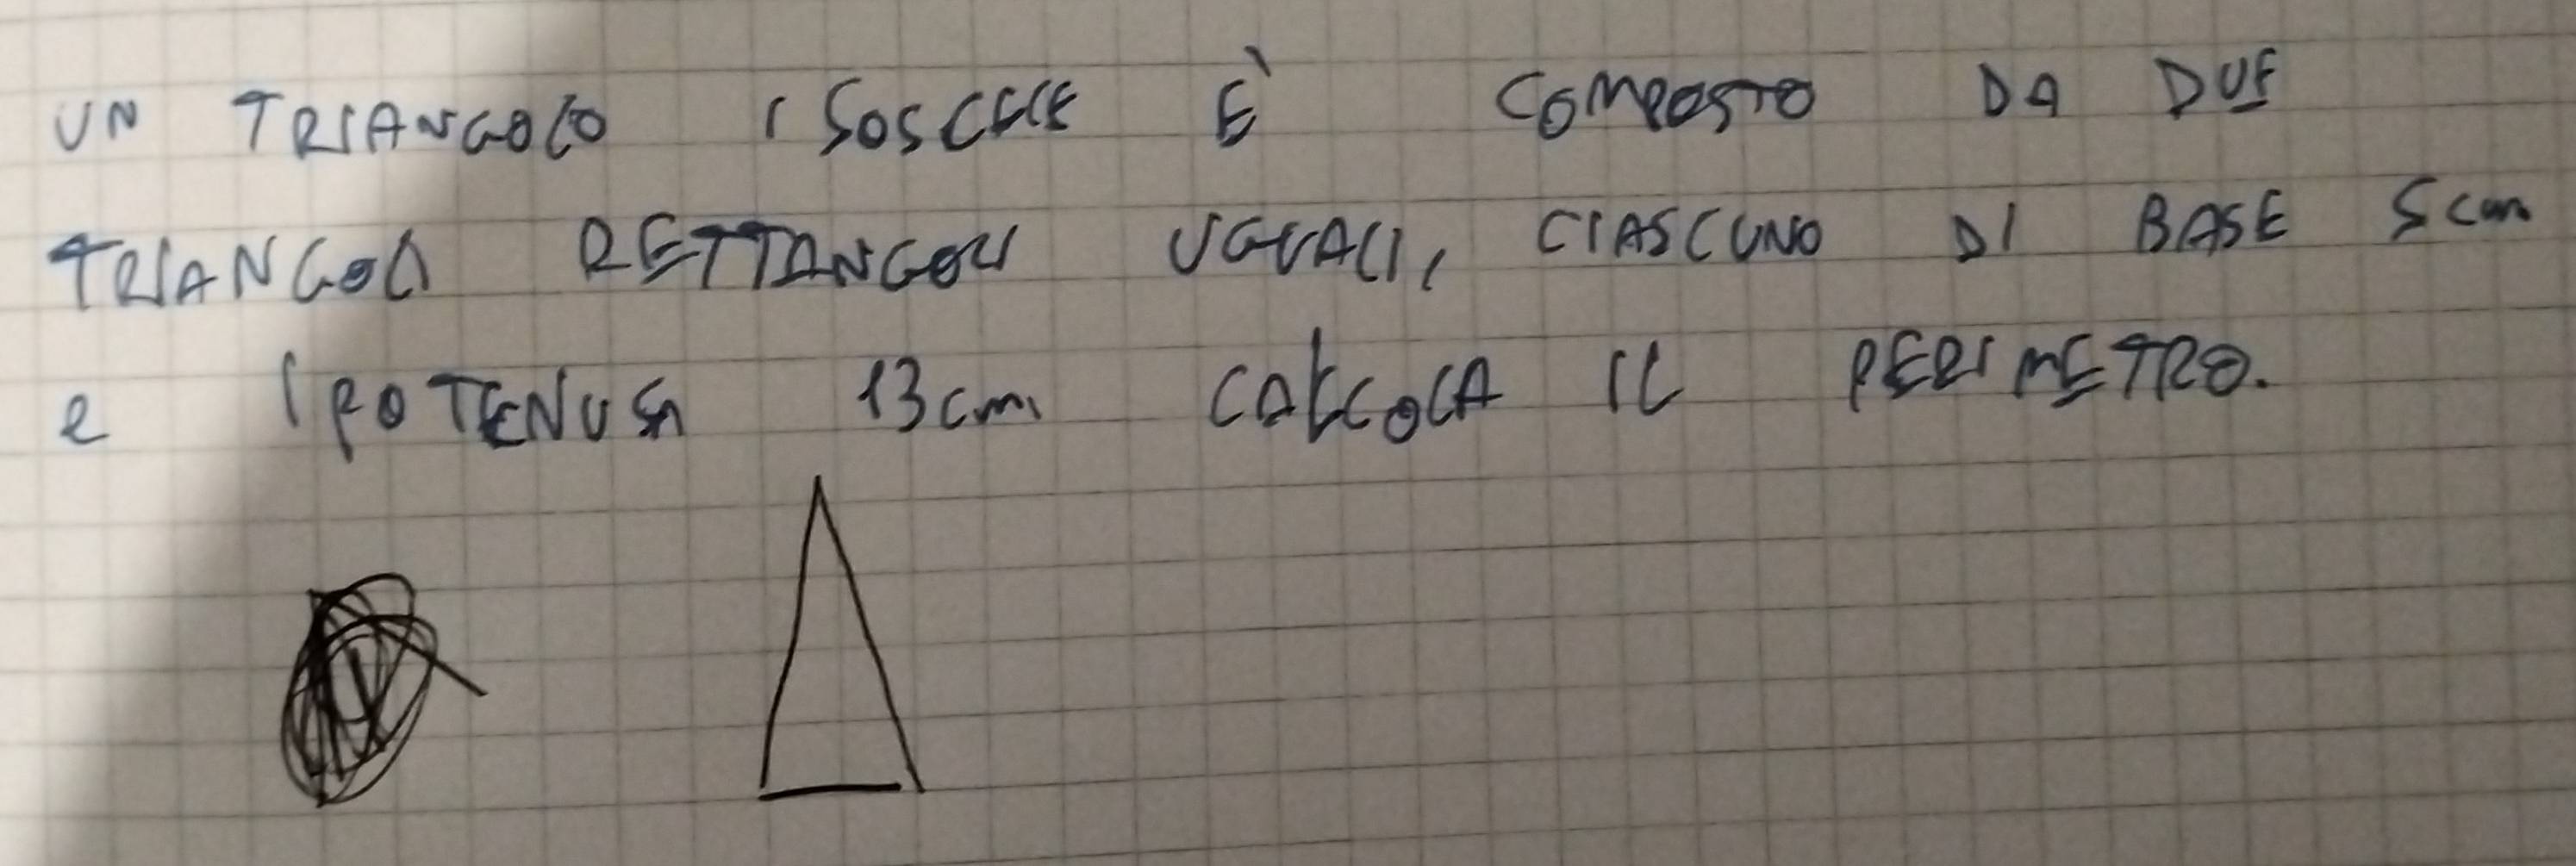 UN TRIANGOLO ISOSCELE È COMPOSTO DA DUE
TRIANGOLI RETTANGOLI UGUALI, CIASCUNO DI BASE 5cm
e IPOTENUSA 13cm. CALCOLA IL PERIMETRO.